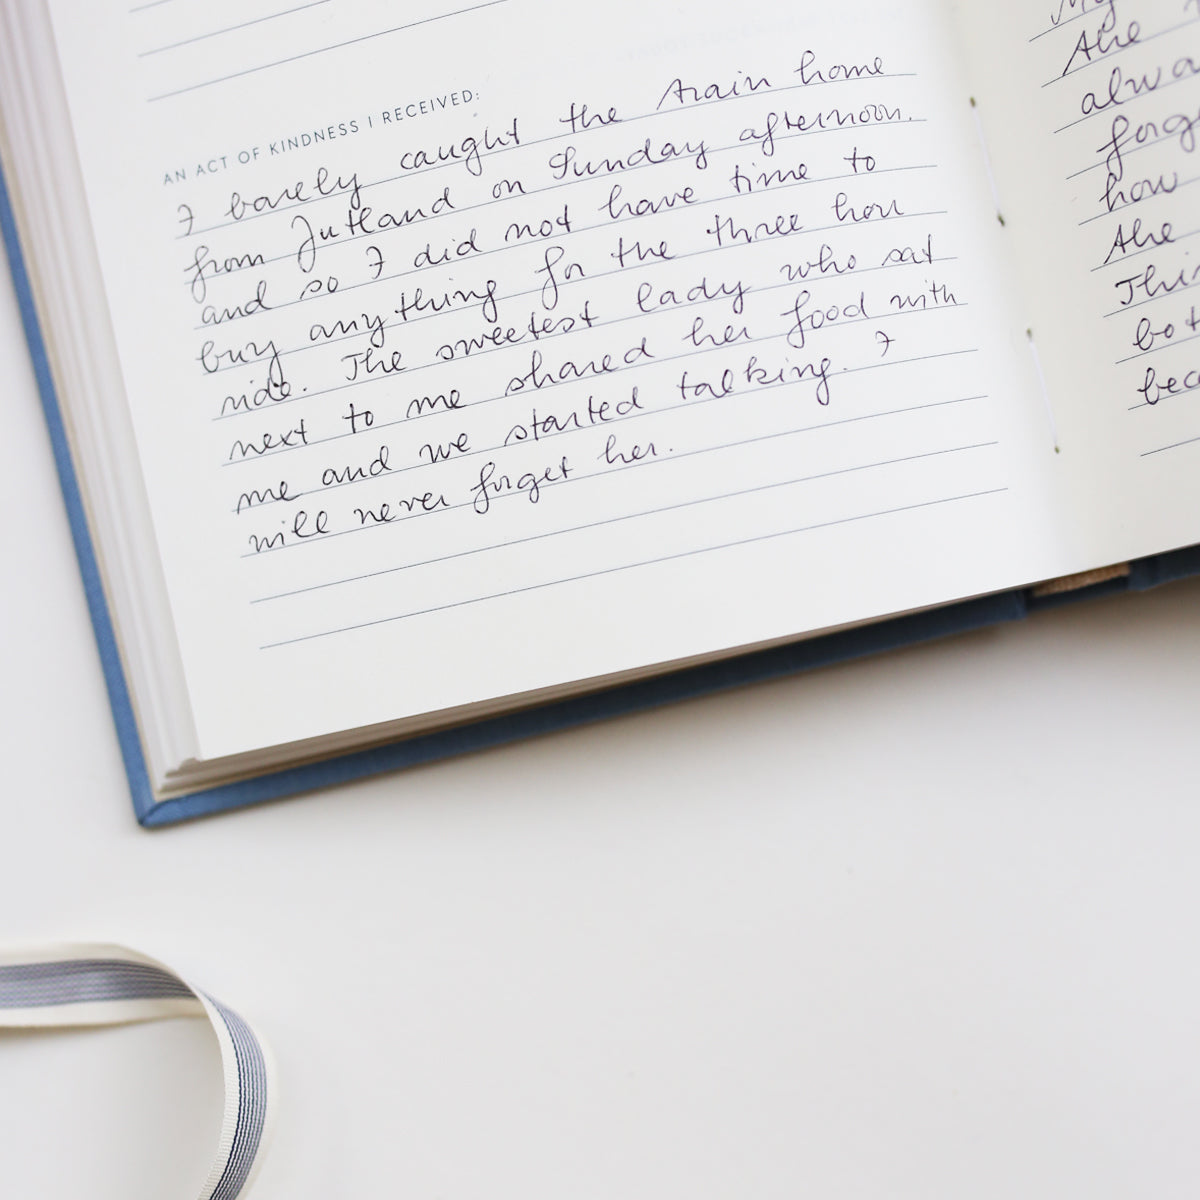 AN ACT OF KINDNESS I RECEIVED:
I barely caught the train home
from Jutland on Sunday afternoon.
and so I did not have time to
buy anything for the three hour
ride. The sweetest lady who sat
next to me shared her food with
me and we started talking. I
will never forget her.
My
the
alwa
forg
how
the
This
bot
bec